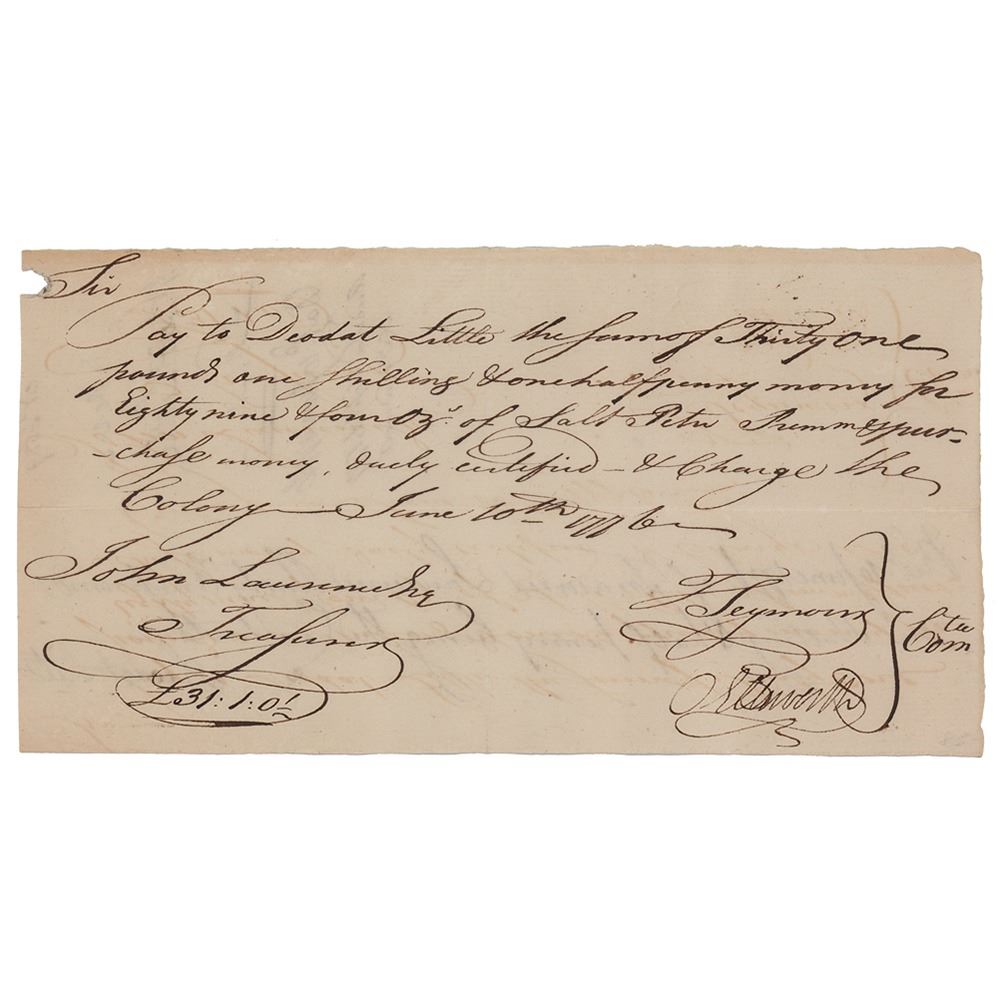 Sir
Pay to Deodat Little the sum of Thirty one
pounds one shilling & one half penny money for
Eighty nine & four Ozs. of Salt Petre Premm & pur-
-chase money, duely certified - & Charge the
Colony - June 10th 1776
John Lawrence Esqr
Treasurer
£31:1:0½
T Seymour
Com tee